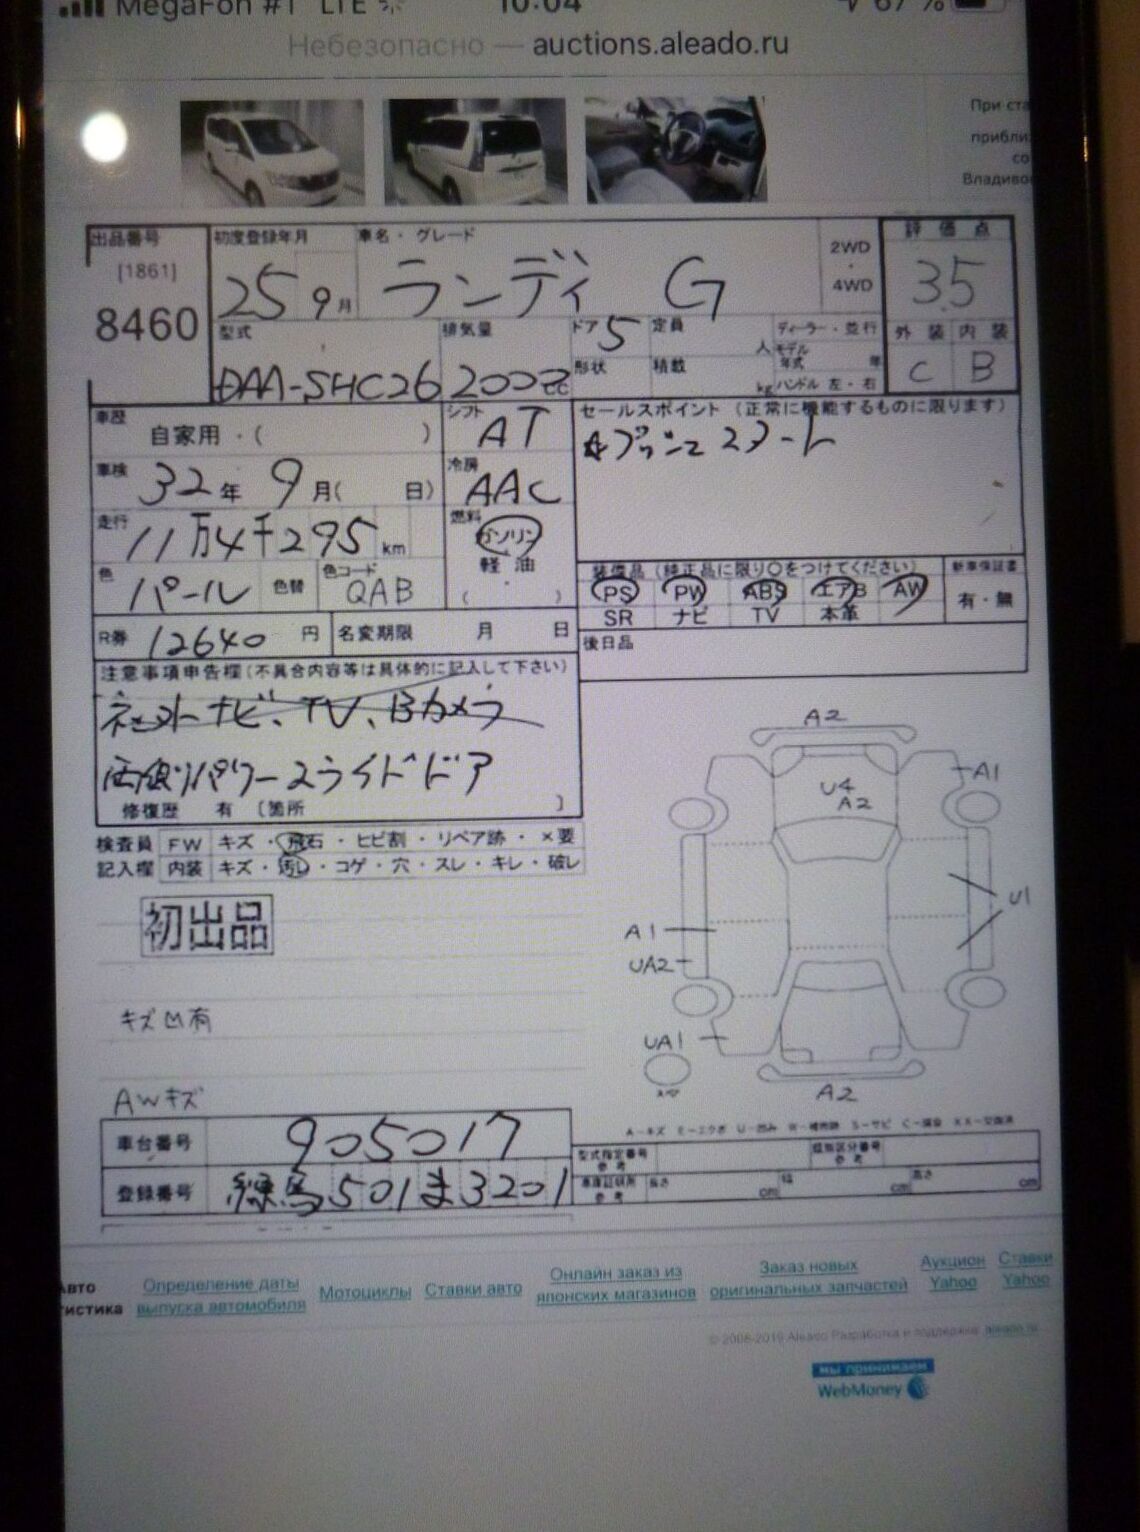 MegaFon #1 LTE
10:04
67 %
Небезопасно — auctions.aleado.ru
При ста
прибли
со
Владивос
出品番号
[1861]
8460
初度登録年月
25 9月
車名・グレード
ランディ G
2WD
・
4WD
評価点
3.5
外装 内装
C B
型式
DAA-SHC26
排気量
2000 cc
ドア 5
定員 人
形状
積載 kg
ディーラー・並行
モデル年式 年
ハンドル 左・右
車歴
自家用・( )
シフト AT
車検 32年 9月( 日)
冷房 AAC
走行 11万4千295 km
燃料
ガソリン
軽油
( )
色 パール 色替
色コード QAB
R券 12640 円
名変期限 月 日
セールスポイント (正常に機能するものに限ります)
装備品 (純正品に限り○をつけてください)
新車保証書
PS PW ABS エアB AW
SR ナビ TV 本革
有・無
後日品
注意事項申告欄(不具合内容等は具体的に記入して下さい)
ナビ、TV、Bカメラ
両側パワースライドドア
修復歴 有 〔箇所 〕
検査員 FW キズ・飛石・ヒビ割・リペア跡・×要
記入欄 内装 キズ・汚れ・コゲ・穴・スレ・キレ・破レ
初出品
キズ凹有
AWキズ
A2
U4
A2
A1
U1
A1
UA2
UA1
A2
車台番号 905017
登録番号 練馬501ま3201
型式指定番号
参考
類別区分番号
参考
参考
長さ cm
幅 cm
高さ cm
Авто
тистика
Определение даты
выпуска автомобиля
Мотоциклы
Ставки авто
Онлайн заказ из
японских магазинов
Заказ новых
оригинальных запчастей
Аукцион
Yahoo
Ставки
Yahoo
© 2008-2019 Aleado Разработка и поддержка aleado.ru
мы принимаем
WebMoney